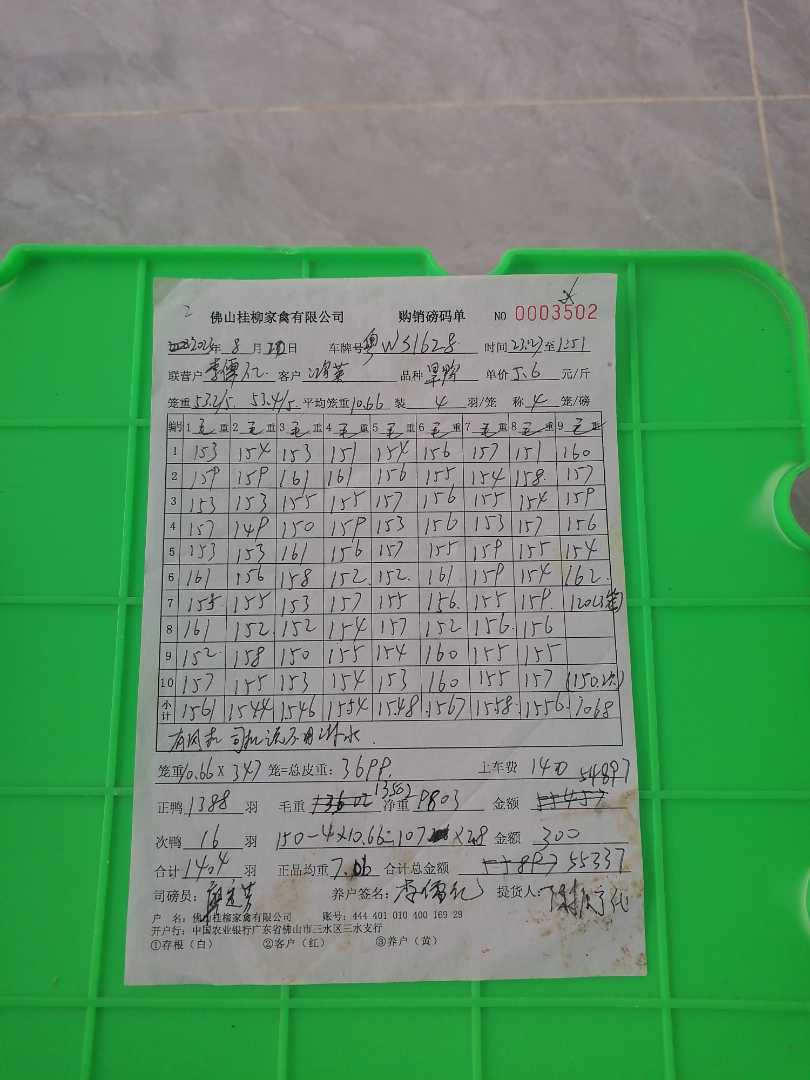 2
佛山桂柳家禽有限公司 购销磅码单 NO 0003502
2023年 8 月 日 车牌号 粤WS1628 时间 至 1:51
联营户 客户 品种 单价 5.6 元/斤
笼重 53.2/5. 53.4/5 平均笼重 10.66 装 4 羽/笼 称 4 笼/磅
编号 1 毛重 2 毛重 3 毛重 4 毛重 5 毛重 6 毛重 7 毛重 8 毛重 9 毛重
1 153 154 153 151 154 156 157 151 160
2 159 159 161 161 156 155 154 158. 157
3 153 153 155 155 157 156 155 154 159
4 157 149 150 159 153 156 153 157 156
5 153 153 161 156 157 155 159 155 154
6 161 156 158 152. 152. 161 159 154 162.
7 155 155 153 157 155 156. 155 159. 120(3笼)
8 161 152. 152 154 157 152 156. 156
9 152. 158 150 155 154 160 155 155
10 157 155 153 154 153 160 155 157 (150.次)
小计 1561 1544 1546 1554 1548 1567 1558 1556 1068
有风机 司机说不用淋水.
笼重 10.66 X 347 笼=总皮重: 3699. 上车费 140 54897
正鸭 1388 羽 毛重 13602 13.502 净重 9803 金额 55457
次鸭 16 羽 150-4×10.66=107 ×2.8 金额 300
合计 1404 羽 正品均重 7.06 合计总金额 55897 55337
司磅员: 养户签名: 提货人:
户 名: 佛山桂柳家禽有限公司 账号: 444 401 010 400 169 29
开户行: 中国农业银行广东省佛山市三水区三水支行
①存根(白) ②客户(红) ③养户(黄)